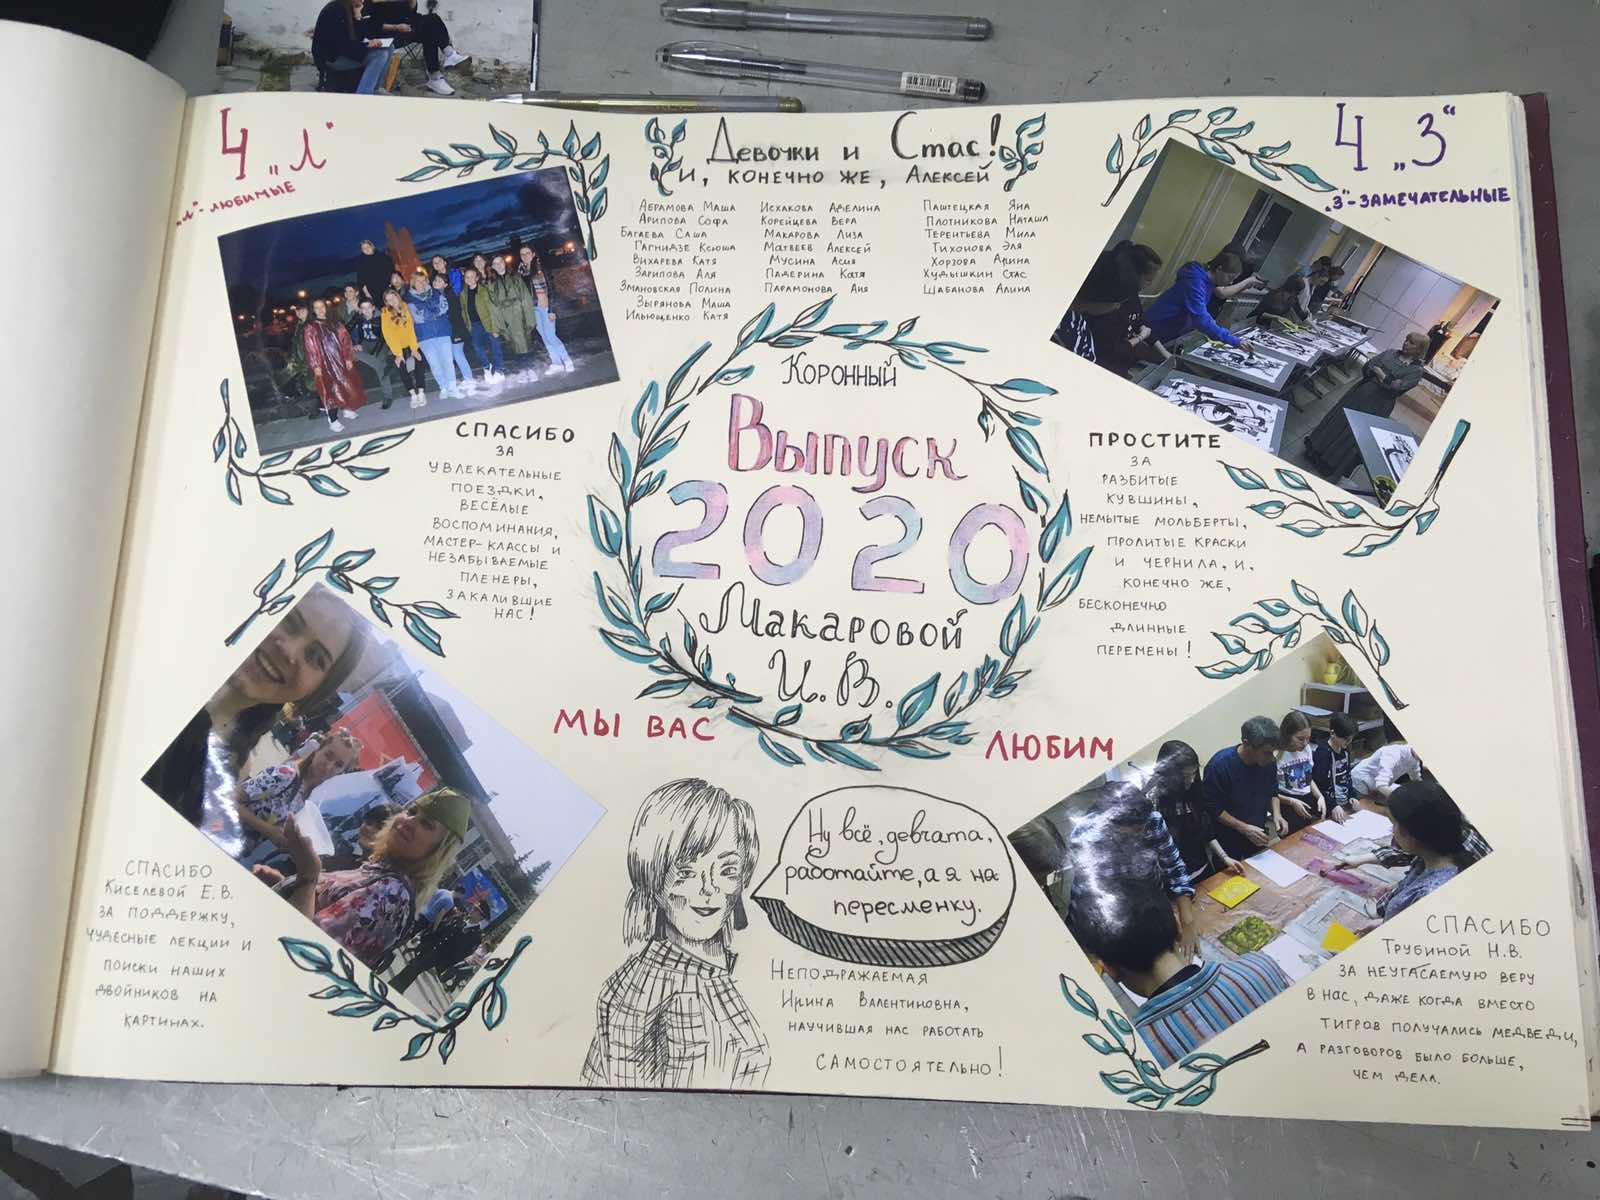 4 „Л"
„Л"-ЛЮБИМЫЕ
Девочки и Стас!
и, конечно же, Алексей
4 „З"
„З"-ЗАМЕЧАТЕЛЬНЫЕ
Абрамова Маша
Арипова Софа
Багаева Саша
Гагнидзе Ксюша
Вихарева Катя
Зарипова Аля
Змановская Полина
Зырянова Маша
Ильющенко Катя
Исхакова Аделина
Корейцева Вера
Макарова Лиза
Матвеев Алексей
Мусина Асия
Падерина Катя
Парамонова Аня
Паштецкая Яна
Плотникова Наташа
Терентьева Мила
Тихонова Эля
Хорзова Арина
Худышкин Стас
Шабанова Алина
Коронный
Выпуск
2020
Макаровой
И.В.
СПАСИБО
ЗА
УВЛЕКАТЕЛЬНЫЕ
ПОЕЗДКИ,
ВЕСЁЛЫЕ
ВОСПОМИНАНИЯ,
МАСТЕР-КЛАССЫ И
НЕЗАБЫВАЕМЫЕ
ПЛЕНЕРЫ,
ЗАКАЛИВШИЕ
НАС!
ПРОСТИТЕ
ЗА
РАЗБИТЫЕ
КУВШИНЫ,
НЕМЫТЫЕ МОЛЬБЕРТЫ,
ПРОЛИТЫЕ КРАСКИ
И ЧЕРНИЛА, И,
КОНЕЧНО ЖЕ,
БЕСКОНЕЧНО
ДЛИННЫЕ
ПЕРЕМЕНЫ!
МЫ ВАС ЛЮБИМ
Ну всё, девчата,
работайте, а я на
пересменку.
Неподражаемая
Ирина Валентиновна,
научившая нас работать
самостоятельно!
СПАСИБО
Киселевой Е.В.
за поддержку,
чудесные лекции и
поиски наших
двойников на
картинах.
СПАСИБО
Трубиной Н.В.
за неугасаемую веру
в нас, даже когда вместо
тигров получались медведи,
а разговоров было больше,
чем дела.